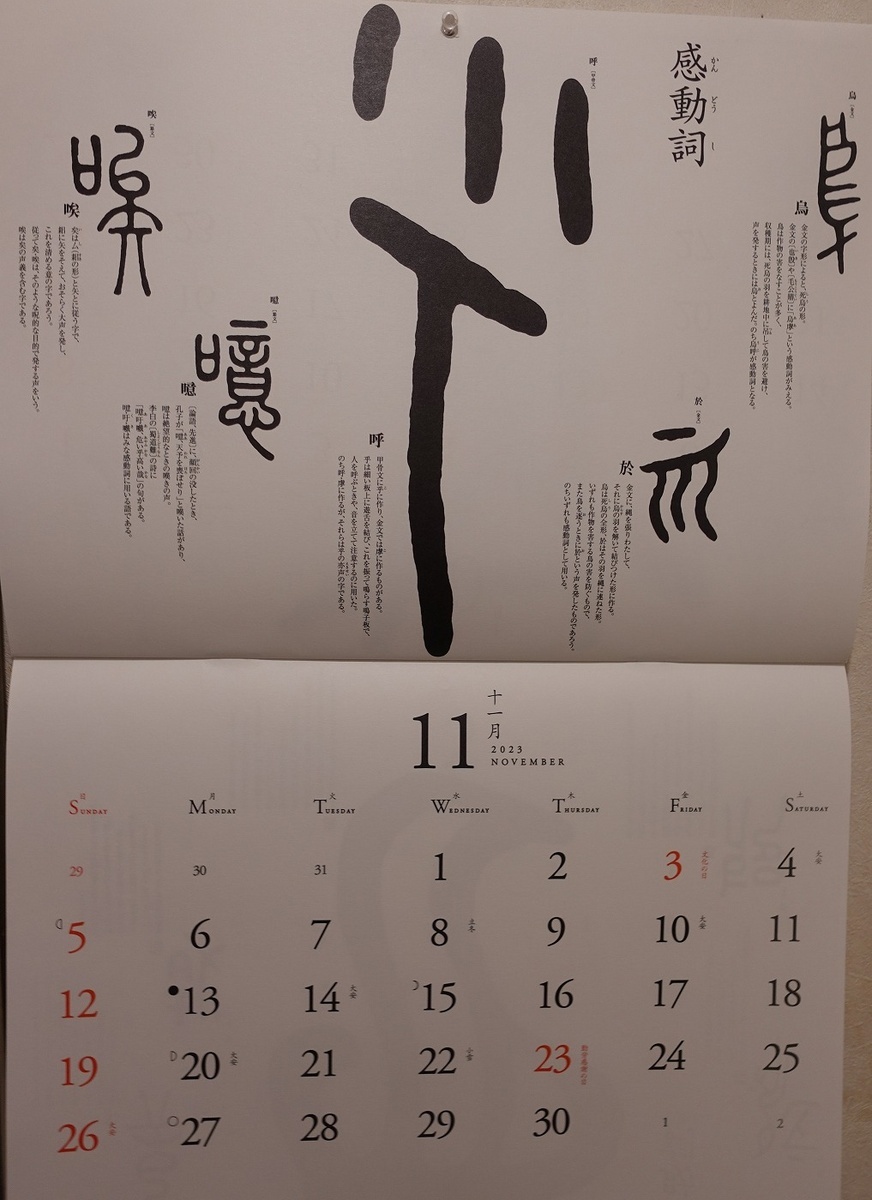 感動詞
かんどうし
烏
［金文］
烏
金文の字形によると、死烏の形。
烏は作物の害をなすことが多く、
収穫期には、死烏の羽を耕地中に吊して鳥の害を避け、
声を発するときには烏とよんだ。のち烏呼が感動詞となる。
於
［金文］
於
金文に、縄を張りわたして、
それに鳥の羽を解いて結びつけた形に作る。
烏は死烏の全形、於はその羽を縄に連ねた形。
いずれも作物を害する鳥の害を防ぐもので、
また鳥を逐うときに於という声を発したものであろう。
のちいずれも感動詞として用いる。
呼
［甲骨文］
呼
甲骨文に乎に作り、金文では虖に作るものがある。
乎は細い板上に遊舌を結び、これを振って鳴らす鳴子板で、
人を呼ぶときや、音を立てて注意するのに用いた。
のち呼・虖に作るが、それらは乎の亦声の字である。
噫
［篆文］
噫
［論語、先進］に、顔回の没したとき、
孔子が「噫、天予を喪ぼせり」と嘆いた話があり、
噫は絶望的なときの嘆きの声。
李白の［蜀道難］の詩に
「噫吁嚱、危い乎高い哉」の句がある。
噫・吁・嚱はみな感動詞に用いる語である。
唉
［篆文］
唉
矣はム（㠯の形）と矢とに従う字で、
㠯に矢をそえて、おそらく大声を発し、
これを清める意の字であろう。
従って矣・唉は、そのような呪的な目的で発する声をいう。
唉は矣の声義を含む字である。
11
十一月
2023
NOVEMBER
日 月 火 水 木 金 土
SUNDAY MONDAY TUESDAY WEDNESDAY THURSDAY FRIDAY SATURDAY
29 30 31 1 2 3 文化の日 4 大安
5 6 7 8 立冬 9 10 大安 11
12 13 14 大安 15 16 17 18
19 20 大安 21 22 小雪 23 勤労感謝の日 24 25
26 大安 27 28 29 30 1 2